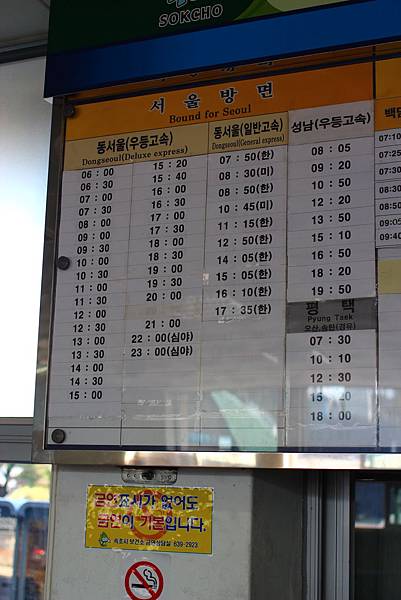 SOKCHO
서울방면
Bound for Seoul
동서울(우등고속)
Dongseoul(Deluxe express)
06 : 00
06 : 30
07 : 00
07 : 30
08 : 00
09 : 00
09 : 30
10 : 00
10 : 30
11 : 00
11 : 30
12 : 00
12 : 30
13 : 00
13 : 30
14 : 00
14 : 30
15 : 00
15 : 20
15 : 40
16 : 00
16 : 30
17 : 00
17 : 30
18 : 00
18 : 30
19 : 00
19 : 30
20 : 00
21 : 00
22 : 00(심야)
23 : 00(심야)
동서울(일반고속)
Dongseoul(General express)
07 : 50(한)
08 : 30(미)
08 : 50(한)
10 : 45(미)
11 : 15(한)
12 : 50(한)
14 : 05(한)
15 : 05(한)
16 : 10(한)
17 : 35(한)
성남(우등고속)
08 : 05
09 : 20
10 : 50
12 : 20
13 : 50
15 : 10
16 : 50
18 : 20
19 : 50
평택
Pyung Taek
오산,송탄(경유)
07 : 30
10 : 10
12 : 30
15 : 20
18 : 00
백담
07:10
07:30
08:30
08:50
09:05
09:40
금연표시가 없어도
금연이 기본입니다.
속초시 보건소 금연상담실 639-2923